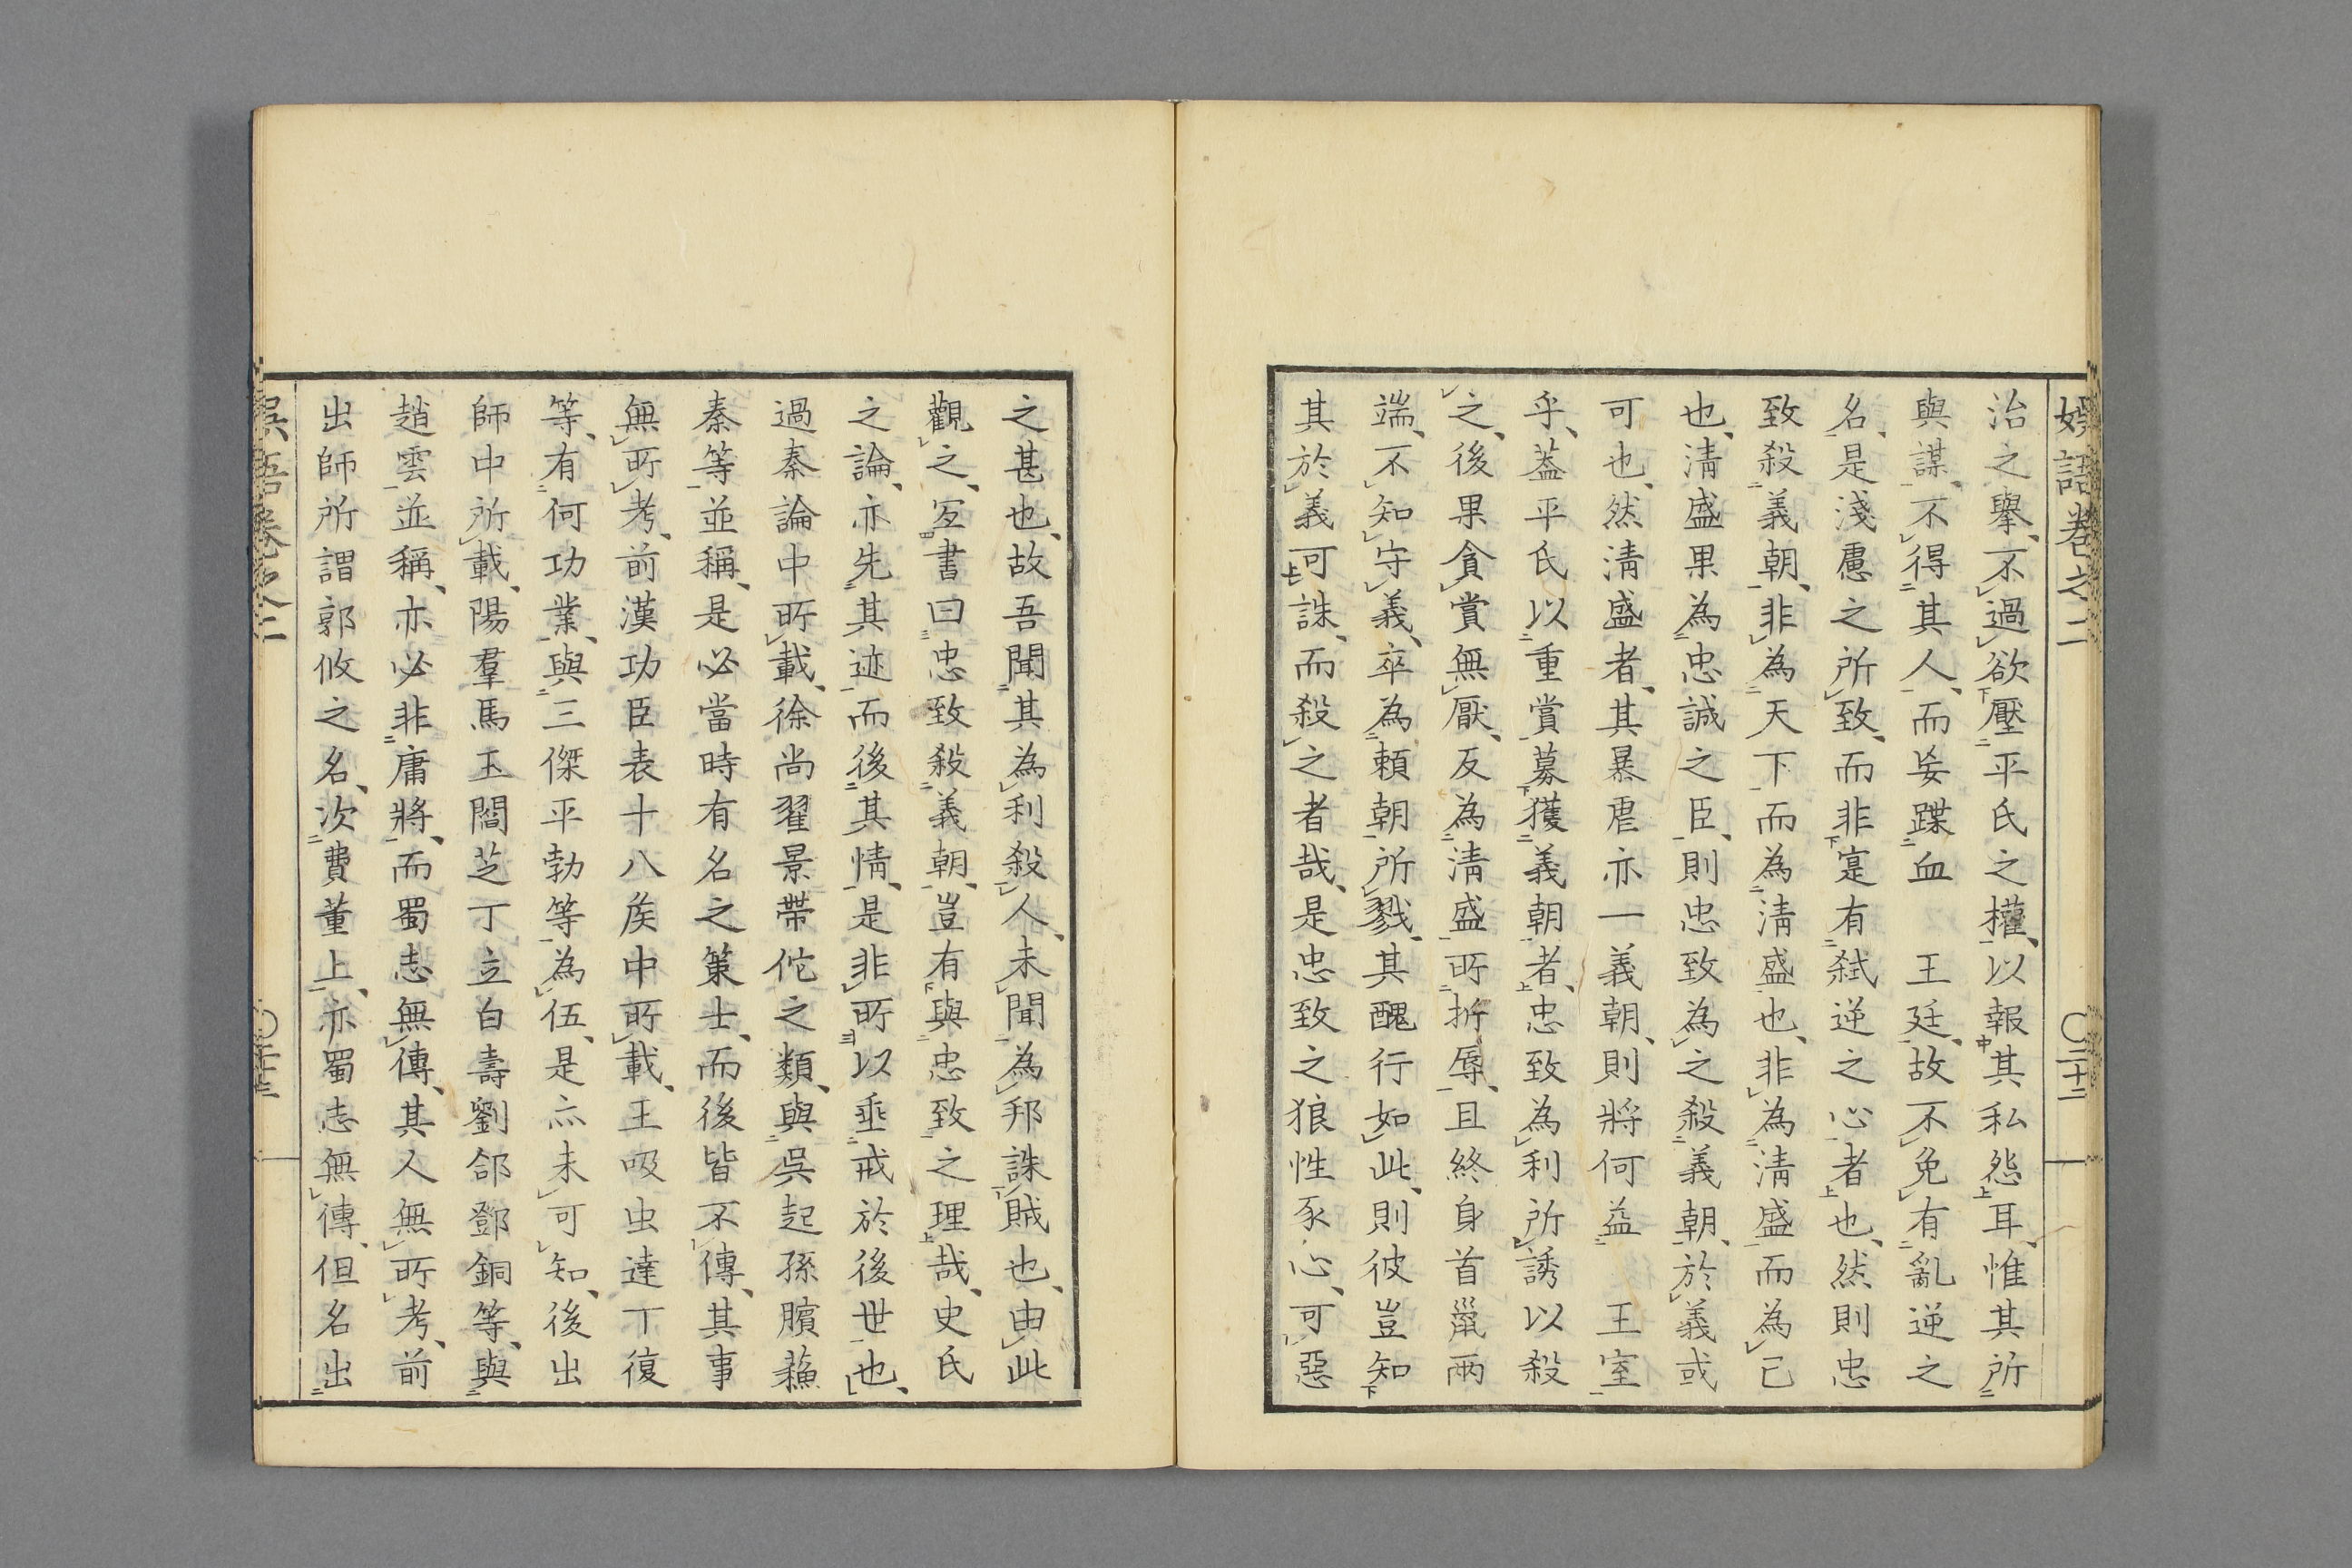 娯語卷之二
〇二十二
治之擧、不過欲壓平氏之權、以報其私怨耳、惟其所
與謀、不得其人、而妄蹀血　王廷、故不免有亂逆之
名、是淺慮之所致、而非寔有弑逆之心者也、然則忠
致殺義朝、非為天下而為淸盛也、非為淸盛而為己
也、淸盛果為忠誠之臣、則忠致為之殺義朝、於義或
可也、然淸盛者、其暴虐亦一義朝、則將何益　王室
乎、蓋平氏以重賞募獲義朝者、忠致為利所誘以殺
之、後果貪賞無厭、反為淸盛所折辱、且終身首鼠兩
端、不知守義、卒為頼朝所戮、其醜行如此、則彼豈知
其於義可誅、而殺之者哉、是忠致之狼性豕心、可惡
之甚也、故吾聞其為利殺人、未聞為邦誅賊也、由此
觀之、宜書曰忠致殺義朝、豈有與忠致之理哉、史氏
之論、亦先其迹而後其情、是非所以垂戒於後世也、
過秦論中所載、徐尚翟景帶佗之類、與吳起孫臏蘇
秦等並稱、是必當時有名之策士、而後皆不傳、其事
無所考、前漢功臣表十八矦中所載、王吸虫達丁復
等、有何功業、與三傑平勃等為伍、是亦未可知、後出
師中所載、陽羣馬玉閻芝丁立白壽劉郃鄧銅等、與
趙雲並稱、亦必非庸將、而蜀志無傳、其人無所考、前
出師所謂郭攸之名、次費董上、亦蜀志無傳、但名出